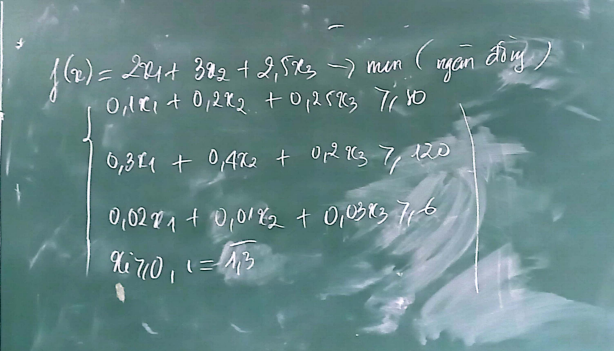 f(x) = 2x₁ + 3x₂ + 2,5x₃ → min (ngàn đồng)
0,1x₁ + 0,2x₂ + 0,25x₃ ⩾ 80
0,3x₁ + 0,4x₂ + 0,2x₃ ⩾ 120
0,02x₁ + 0,01x₂ + 0,03x₃ ⩾ 6
xᵢ ⩾ 0, i = 1,3